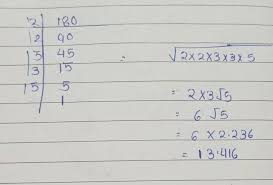 2 | 180
2 | 90
3 | 45
3 | 15
5 | 5
1
= √2×2×3×3×5
= 2×3√5
= 6√5
= 6×2.236
= 13.416